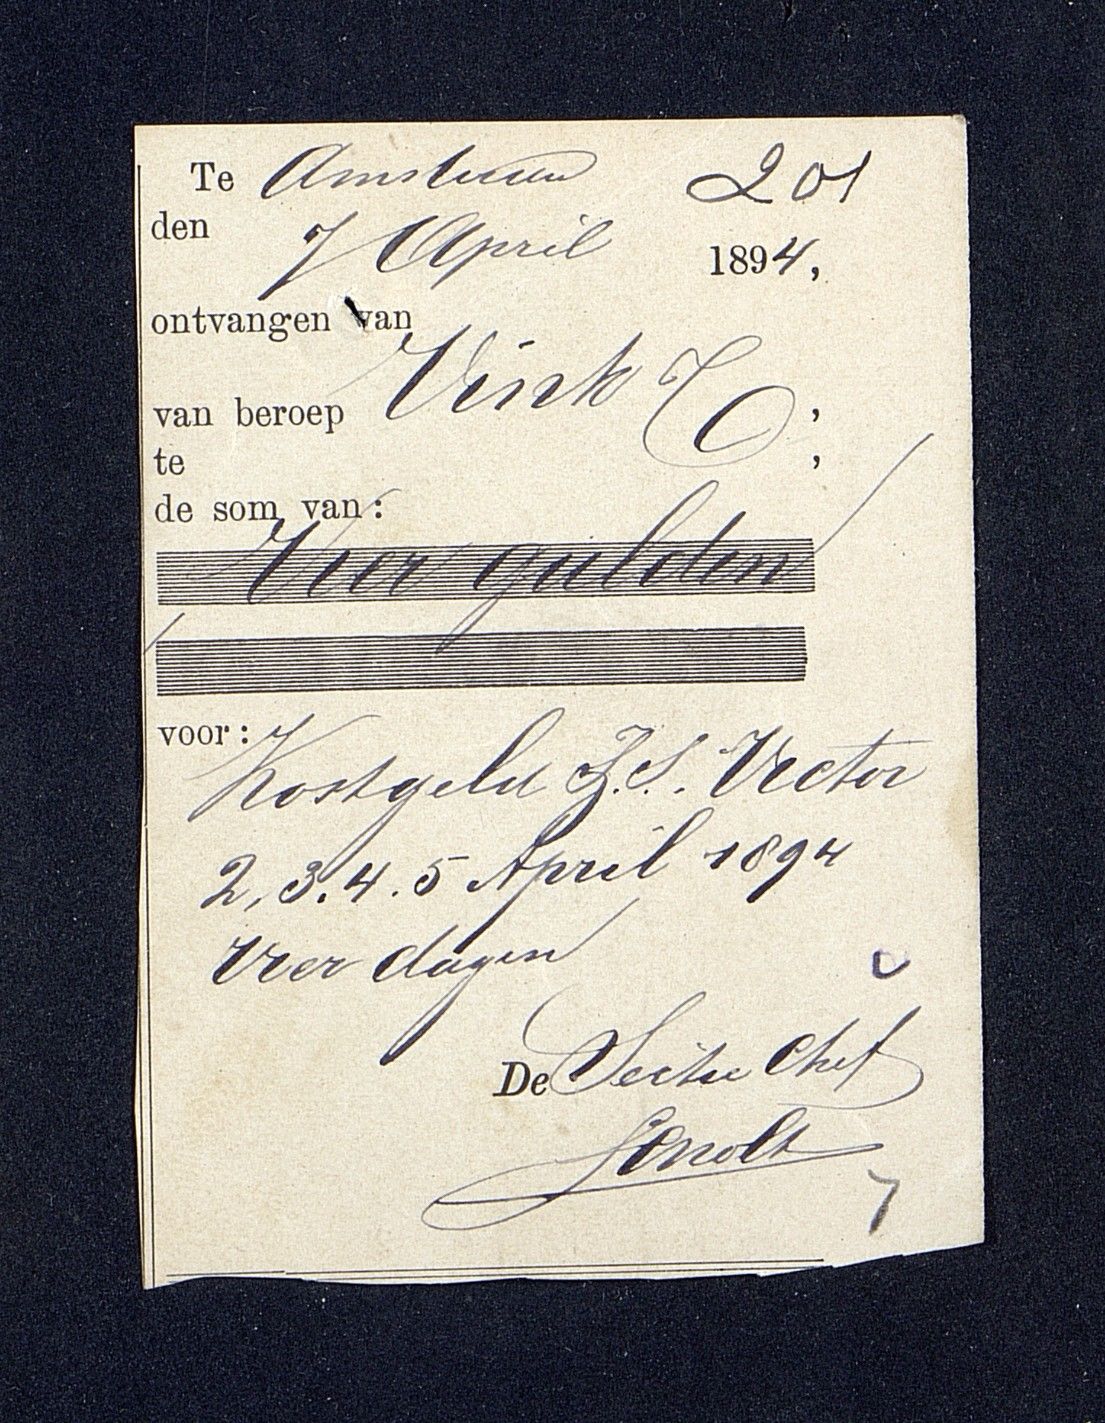 Te Amsterdam 201
den 7 April 1894,
ontvangen van
Vink C
van beroep ;
te ,
de som van:
Vier gulden
voor:
Kostgeld J.S. Victor
2, 3. 4. 5 April 1894
Vier dagen
De Sectie Chef
7